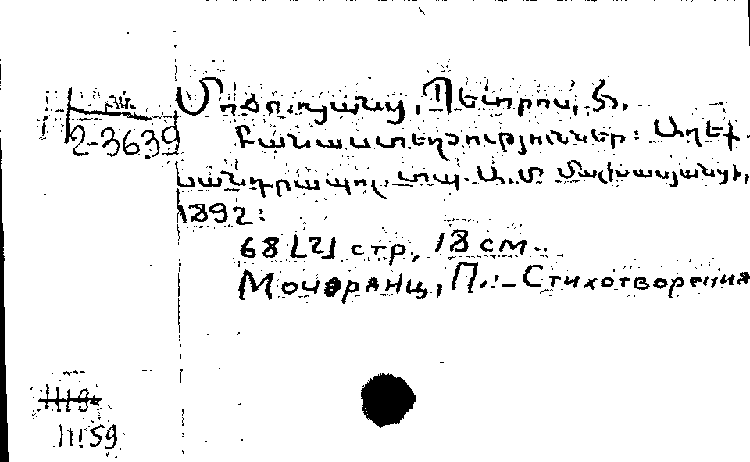 2-3639
Պետրոս,
Բանաստեղծություններ: Աղեք
սանդրապոլ, տպ. Ա.Մ. Մալխասյանցի,
1892:
68 [2] стр, 18 см..
Мочоранц, П.. — Стихотворения
1118
11159